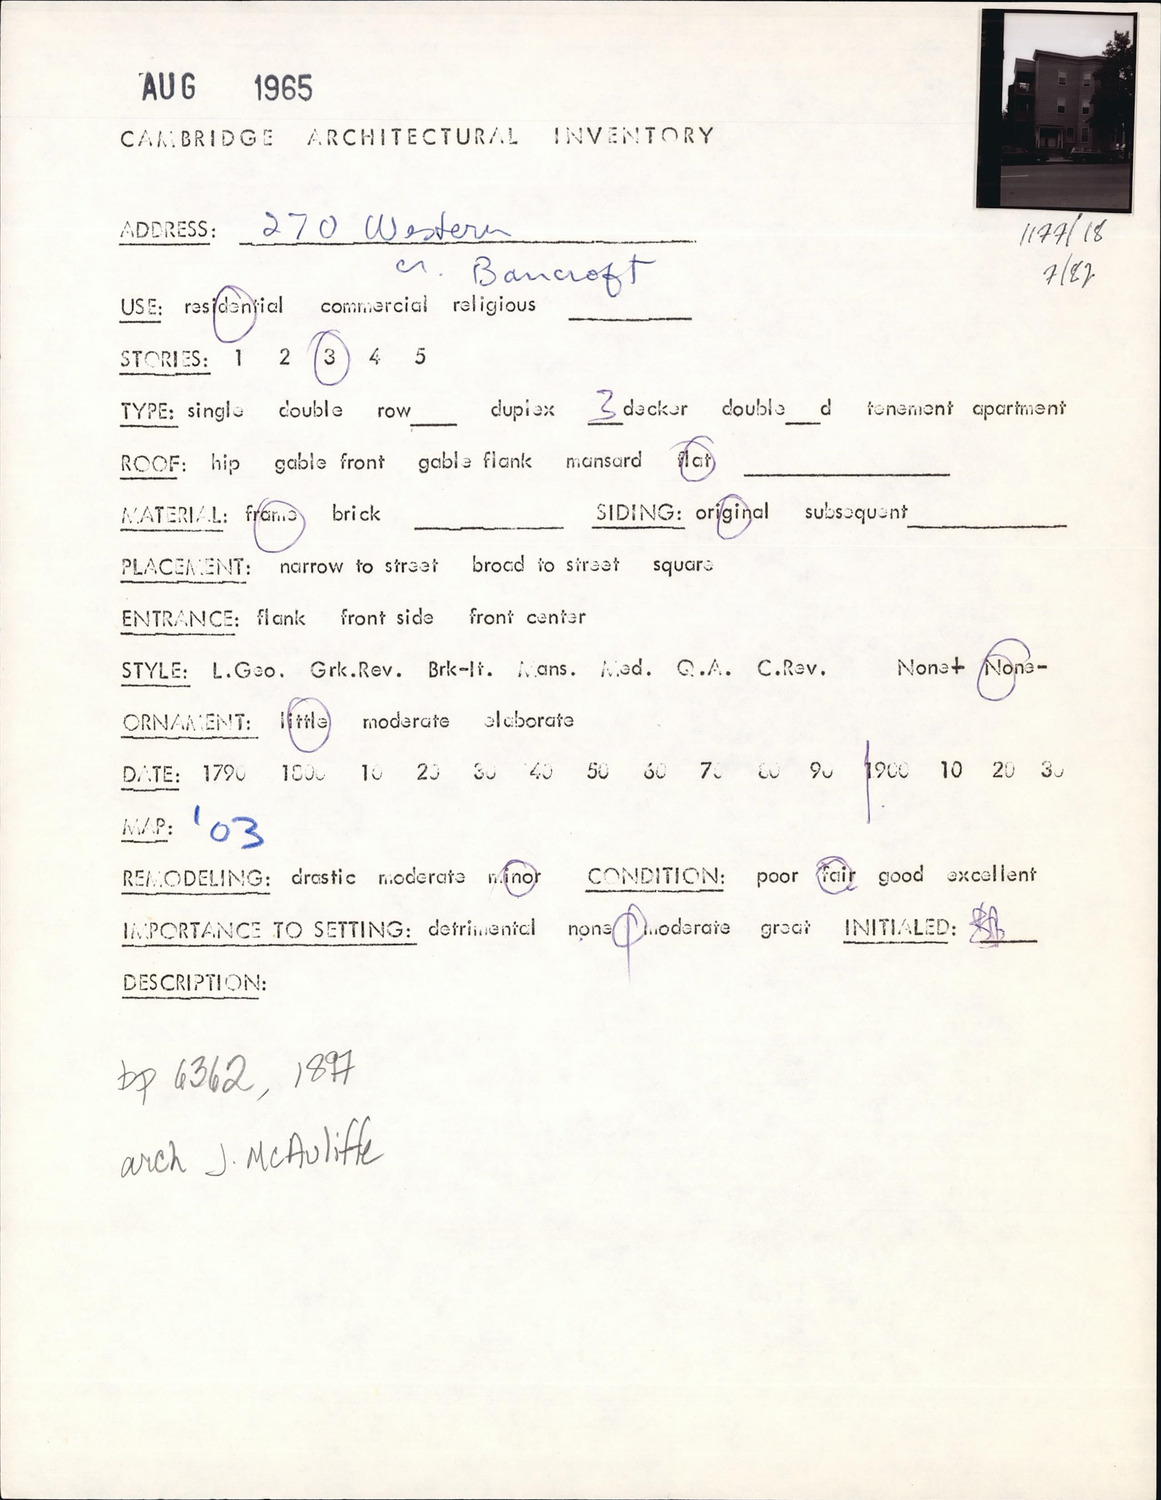 AUG 1965
CAMBRIDGE ARCHITECTURAL INVENTORY
1177/18
7/82
ADDRESS: 270 Western
cr. Bancroft
USE: residential commercial religious
STORIES: 1 2 3 4 5
TYPE: single double row___ duplex 3 decker double___d tenement apartment
ROOF: hip gable front gable flank mansard flat
MATERIAL: frame brick ______ SIDING: original subsequent______
PLACEMENT: narrow to street broad to street square
ENTRANCE: flank front side front center
STYLE: L.Geo. Grk.Rev. Brk-It. Mans. Med. Q.A. C.Rev. None+ None-
ORNAMENT: little moderate elaborate
DATE: 1790 1800 10 20 30 '40 50 60 70 80 90 1900 10 20 30
MAP: '03
REMODELING: drastic moderate minor CONDITION: poor fair good excellent
IMPORTANCE TO SETTING: detrimental none moderate great INITIALED:
DESCRIPTION:
bp 6362, 1897
arch J. McAuliffe